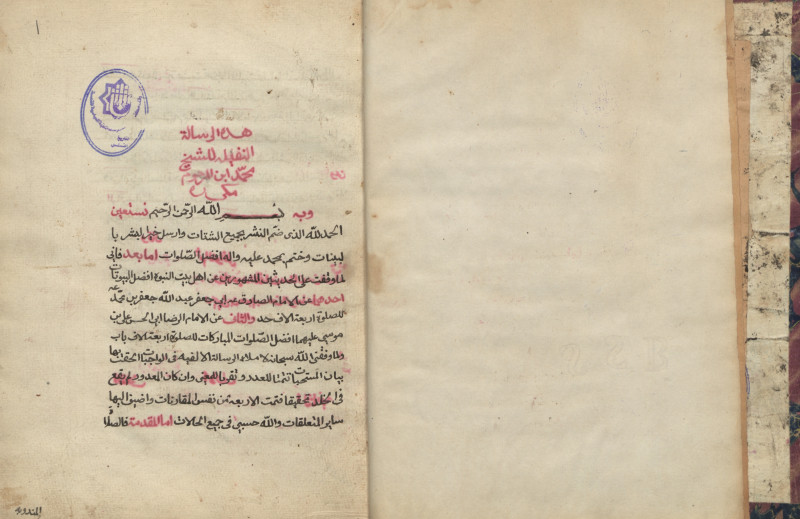 هذه الرسالة
النفلية للشيخ
محمد ابن المرحوم
مكي ره
وبه بسم الله الرحمن الرحيم نستعين
الحمد لله الذى ضم النشر بجميع الشتات وارسل خير البشر با
لبينات وختم بمحمد عليه واله افضل الصلوات اما بعد فانى
لما وقفت على الحديثين المشهورين عن اهل بيت النبوة افضل البيوتات
احدهما عن الامام الصادق ابى عبد الله جعفر بن محمد
للصلوة اربعة الاف حد والثانى عن الامام الرضا ابى الحسن على بن
موسى عليهما افضل الصلوات المباركات للصلوة اربعة الاف باب
ولما وفقنى الله سبحانه لاملاء الرسالة الالفيه فى الواجبات الحقت بها
بيان المستحبات تتمنا للعدد وتقريبا للمعنى وان كان المعدود لم يقع
فى الخلد تحقيقا فتمت الاربعة من نفس المقارنات واضيف اليها
ساير المتعلقات والله حسبى فى جميع الحالات اما المقدمة فالصلوة